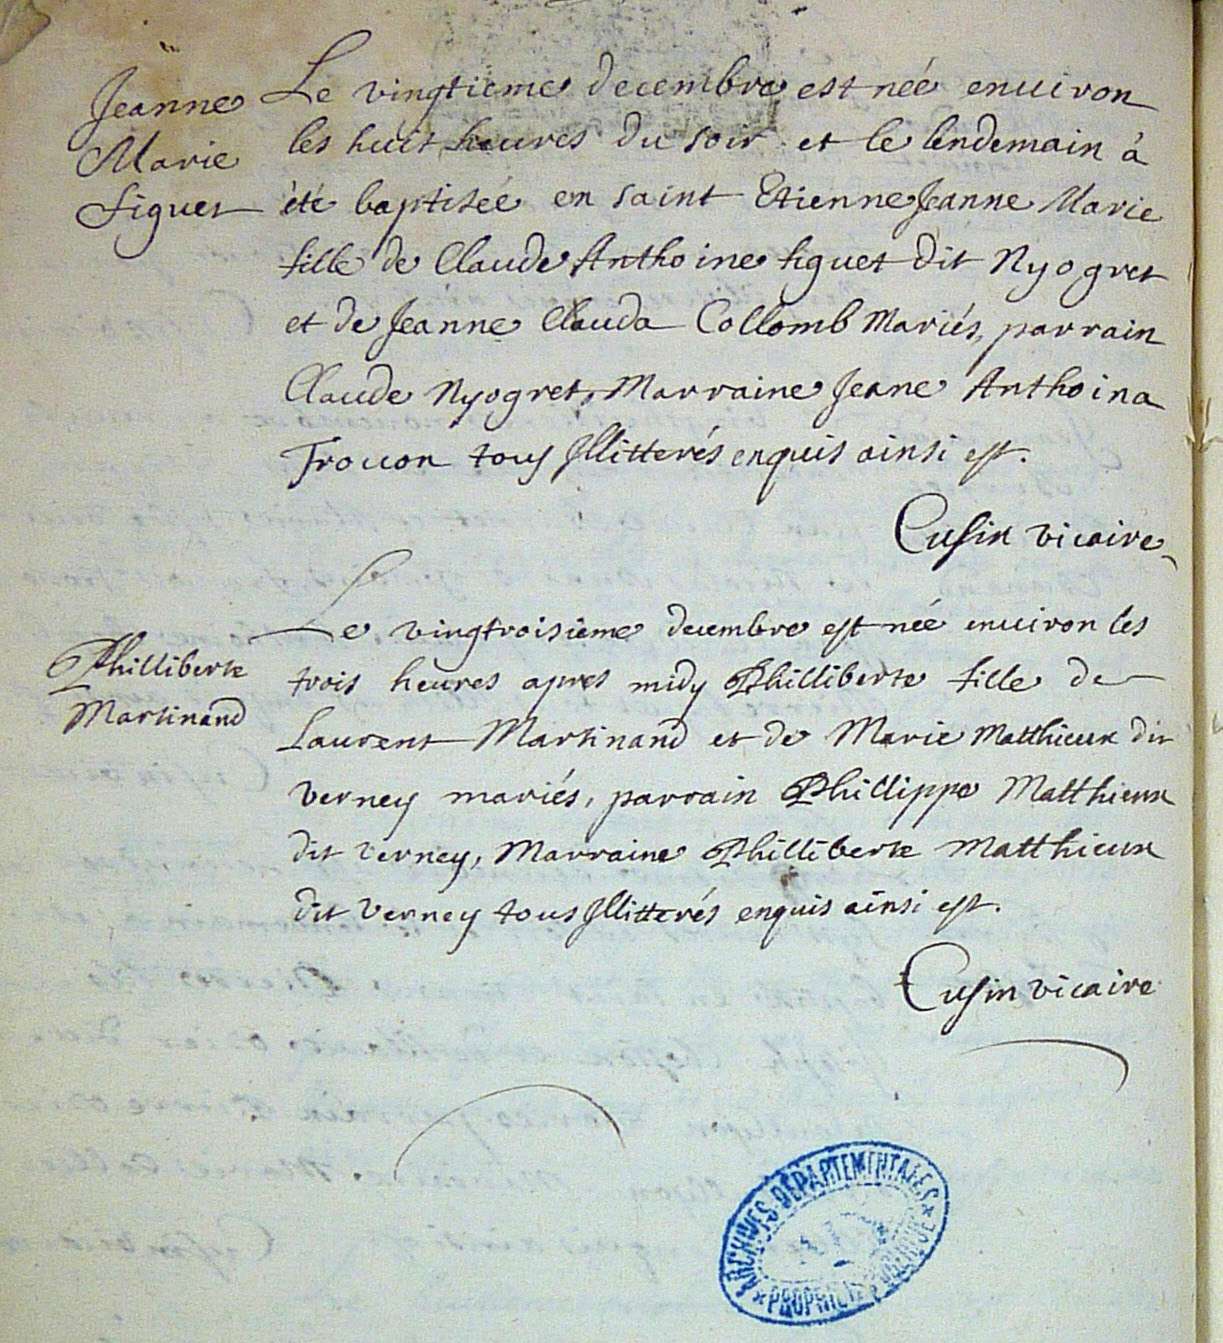 Jeanne
Marie
figuet
Le vingtieme decembre est née enuiron
les huit heures du soir et le lendemain à
été baptisée en saint Etienne Jeanne Marie
fille de Claude Anthoine figuet dit Nyogret
et de Jeanne Clauda Collomb Mariés, parrain
Claude Nyogret, Marraine Jeane Anthoina
Trouon tous Illitterés enquis ainsi est.
Cusin vicaire
Philliberte
Martinand
Le vingtroisieme decembre est née enuiron les
trois heures apres midy Philliberte fille de
Laurent Martinand et de Marie Matthieux dit
Verney mariés, parrain Phillippe Matthieux
dit Verney, Marraine Philliberte Matthieux
dit Verney tous Illitterés enquis ainsi est.
Cusin vicaire
ARCHIVES DÉPARTEMENTALES
PROPRIÉTÉ PUBLIQUE